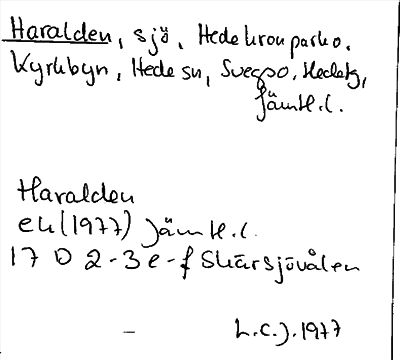 Haralden, sjö, Hede kronparko.
Kyrkbyn, Hede sn, Svegso, Hedetg,
Jämtl.l.
Haralden
ek (1977) Jämtl.l.
17 D 2-3 e-f Skärsjövålen
– L.C.J. 1977